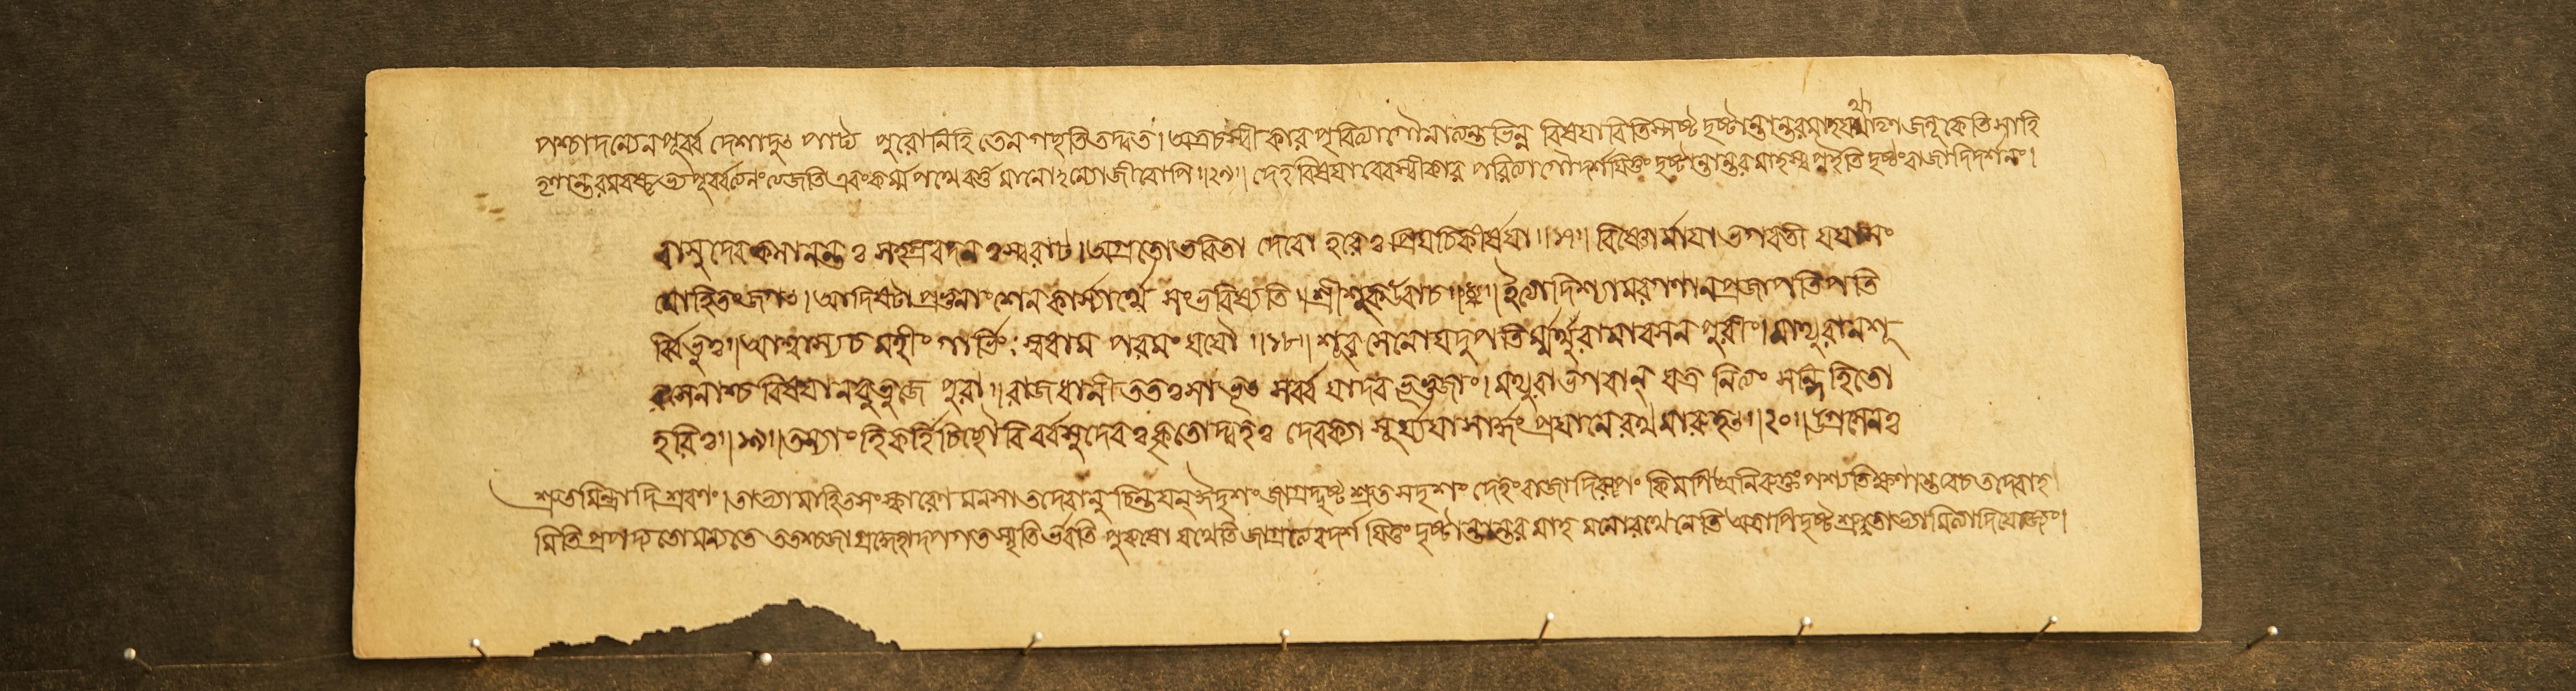 পশ্চাদন্যেনপূর্ব্ব দেশাদুঃ পাঠ্য পুরোনিহি তেন গছতিতদ্বত। অত্রচস্বীকার পৃবিত্যাগৌনাত্যন্ত ভিন্ন বিষয়াবিতিস্পষ্ট দৃষ্টান্তান্তরমাহ যথা তৃণ জলূকেতি সাহি
তৃণান্তরমবষ্টভ্য পূর্ব্বতৃনং ত্যেজতি এবং কর্ম্ম পথে বর্ত্ত মানোঽন্যোজীবোপি॥২৭॥ দেহবিষয়াবেবস্বীকার পরিত্যাগোদর্শয়িতুং দৃষ্টান্তান্তরমাহ স্বপ্নইতি দৃষ্টংরাজাদিদর্শনং।
বাসুদেবকলানন্তঃ সহস্রবদনঃস্বরাট। অগ্রতোভবিতা দেবো হরেঃ প্রিয়চিকীর্ষয়া॥১৭॥ বিষ্ণোর্মায়া ভগবতী যয়াসং
মোহিতংজগত। আদিষ্টা প্রভুনাংশেন কার্য্যার্থে সংভবিষ্যতি॥শ্রীশুকউবাচ॥ ইত্যাদিশ্যামরগণানপ্রজাপতিপতি
র্ব্বিভুঃ॥আশ্বাস্যচ মহীং গীর্ভিঃ স্বধাম পরমং যযৌ॥১৮॥ শূরসেনোযদুপতির্ম্মথুরামাবসন পুরীং। মাথুরানশূ
রসেনাশ্চ বিষয়ানবুভুজে পুরা॥রাজধানী ততঃসাভূত সর্ব্ব যাদব ভূভুজাং। মথুরাভগবান্ যত্র নিত্যং সন্নিহিতো
হরিঃ॥১৯॥তস্যাং হিকর্হিচিছৌ বির্ব্বসুদেবঃকৃতোদ্বহঃ দেবক্যা সূর্য্যয়াসার্দ্ধং প্রয়ানেরথমারুহত॥২০॥উগ্রসেনঃ
শ্রুতমিন্দ্রাদি শ্রবণং। তাভ্যামাহিতসংস্কারেণ মনসা তদেবানু চিন্তয়ন্ ঈদৃশং জাগ্রদ্দৃষ্ট শ্রুত সদৃশং দেহং রাজাদিরূপং কিমপিঅনিরুক্তং পশ্যতি ক্ষণান্তরেচ তদেবাহ
মিতি প্রপদ্যতোমন্যতে ততশ্চজাগ্রদ্দেহাদপগত স্মৃতির্ভবতি পুরুষো যথেতি জাগ্রত্যেবদর্শ য়িতুং দৃষ্টান্তান্তর মাহ মনোরথেনেতি অত্রাপি দৃষ্টশ্রুতোভ্যামিত্যাদিযোজ্যং।